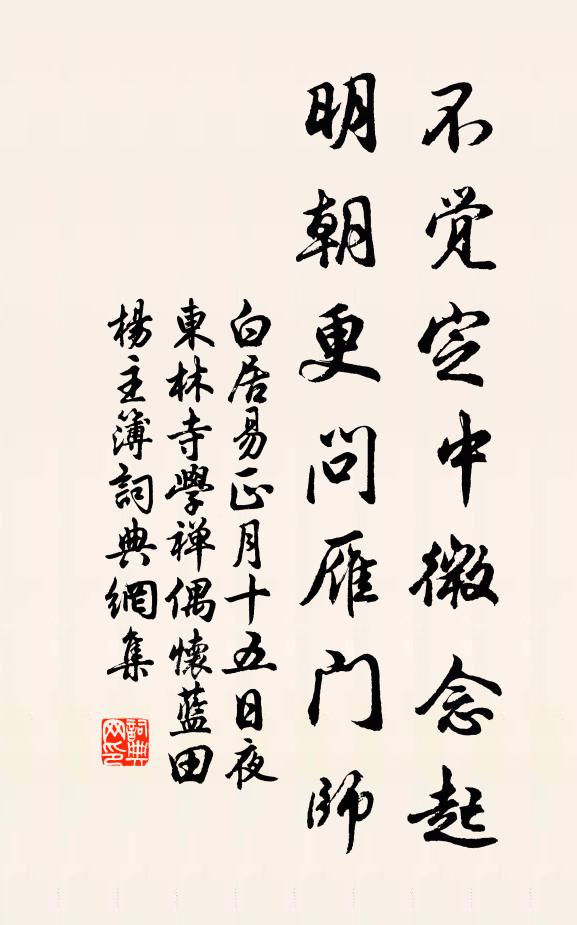 不觉定中微念起
明朝更问雁门师
白居易正月十五日夜
東林寺學禅偶懷藍田
楊主簿詞典網集
詞典
网印